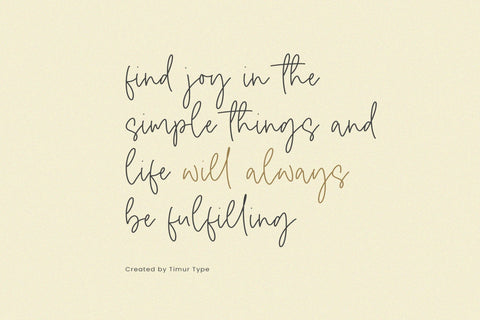 find joy in the
simple things and
life will always
be fulfilling
Created by Timur Type